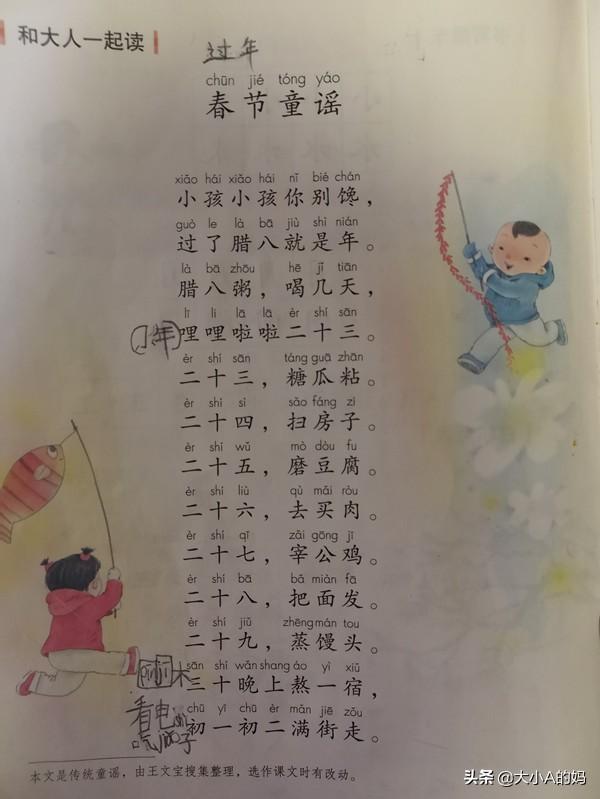 和大人一起读
过年
chūn jié tóng yáo
春节童谣
xiǎo hái xiǎo hái nǐ bié chán
小孩小孩你别馋，
guò le là bā jiù shì nián
过了腊八就是年。
là bā zhōu hē jǐ tiān
腊八粥，喝几天，
lī li lā lā èr shí sān
小年 哩哩啦啦二十三。
èr shí sān táng guā zhān
二十三，糖瓜粘。
èr shí sì sǎo fáng zi
二十四，扫房子。
èr shí wǔ mò dòu fu
二十五，磨豆腐。
èr shí liù qù mǎi ròu
二十六，去买肉。
èr shí qī zǎi gōng jī
二十七，宰公鸡。
èr shí bā bǎ miàn fā
二十八，把面发。
èr shí jiǔ zhēng mán tou
二十九，蒸馒头。
sān shí wǎn shang áo yì xiǔ
三十晚上熬一宿，
chū yī chū èr mǎn jiē zǒu
看电 初一初二满街走。
本文是传统童谣，由王文宝搜集整理，选作课文时有改动。
头条 @大小A的妈